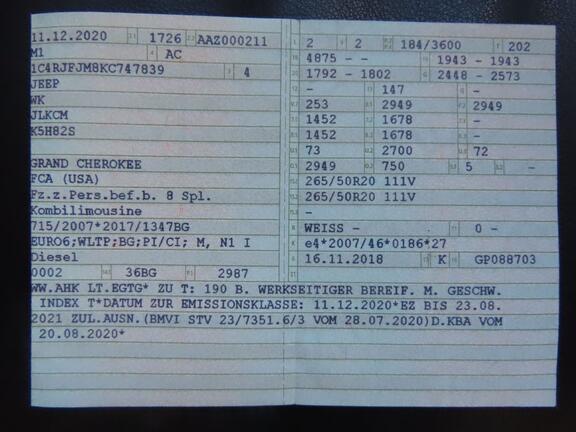 11.12.2020 1726 AAZ000211
M1 AC
1C4RJFJM8KC747839 4
JEEP
WK
JLKCM
K5H82S
GRAND CHEROKEE
FCA (USA)
Fz.z.Pers.bef.b. 8 Spl.
Kombilimousine
715/2007*2017/1347BG
EURO6;WLTP;BG;PI/CI; M, N1 I
Diesel
0002 36BG 2987
2 2 184/3600 202
4875 - - 1943 - 1943
1792 - 1802 2448 - 2573
- 147 -
253 2949 2949
1452 1678 -
1452 1678 -
73 2700 72
2949 750 5 -
265/50R20 111V
265/50R20 111V
-
WEISS - 0 -
e4*2007/46*0186*27
16.11.2018 K GP088703
WW.AHK LT.EGTG* ZU T: 190 B. WERKSEITIGER BEREIF. M. GESCHW.
INDEX T*DATUM ZUR EMISSIONSKLASSE: 11.12.2020*EZ BIS 23.08.
2021 ZUL.AUSN.(BMVI STV 23/7351.6/3 VOM 28.07.2020)D.KBA VOM
20.08.2020*